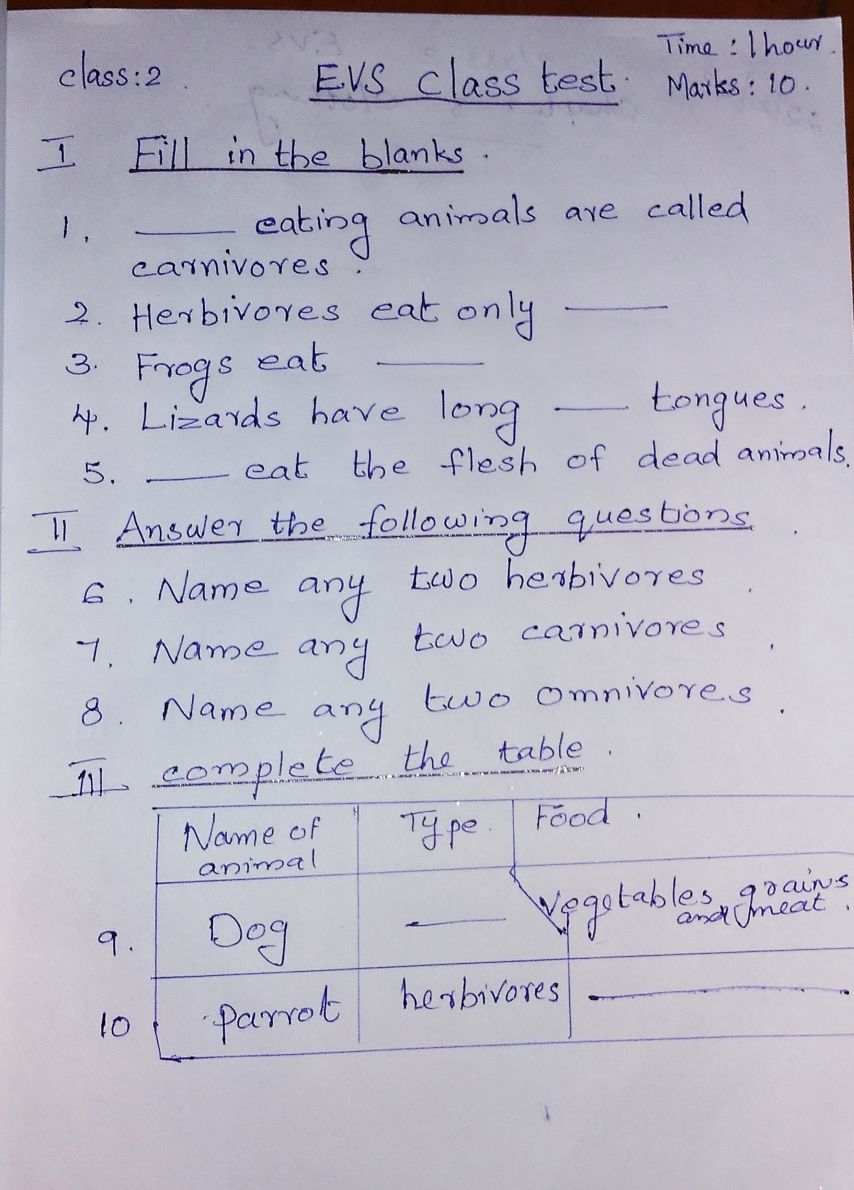 Time : 1 hour.
class:2 EVS class test. Marks : 10.
I Fill in the blanks.
1. ____ eating animals are called
carnivores.
2. Herbivores eat only ____
3. Frogs eat ____
4. Lizards have long ____ tongues.
5. ____ eat the flesh of dead animals.
II Answer the following questions.
6. Name any two herbivores.
7. Name any two carnivores.
8. Name any two omnivores.
III complete the table.
Name of Type. Food.
animal
9. Dog ____ vegetables, grains
and meat.
10 parrot herbivores ____